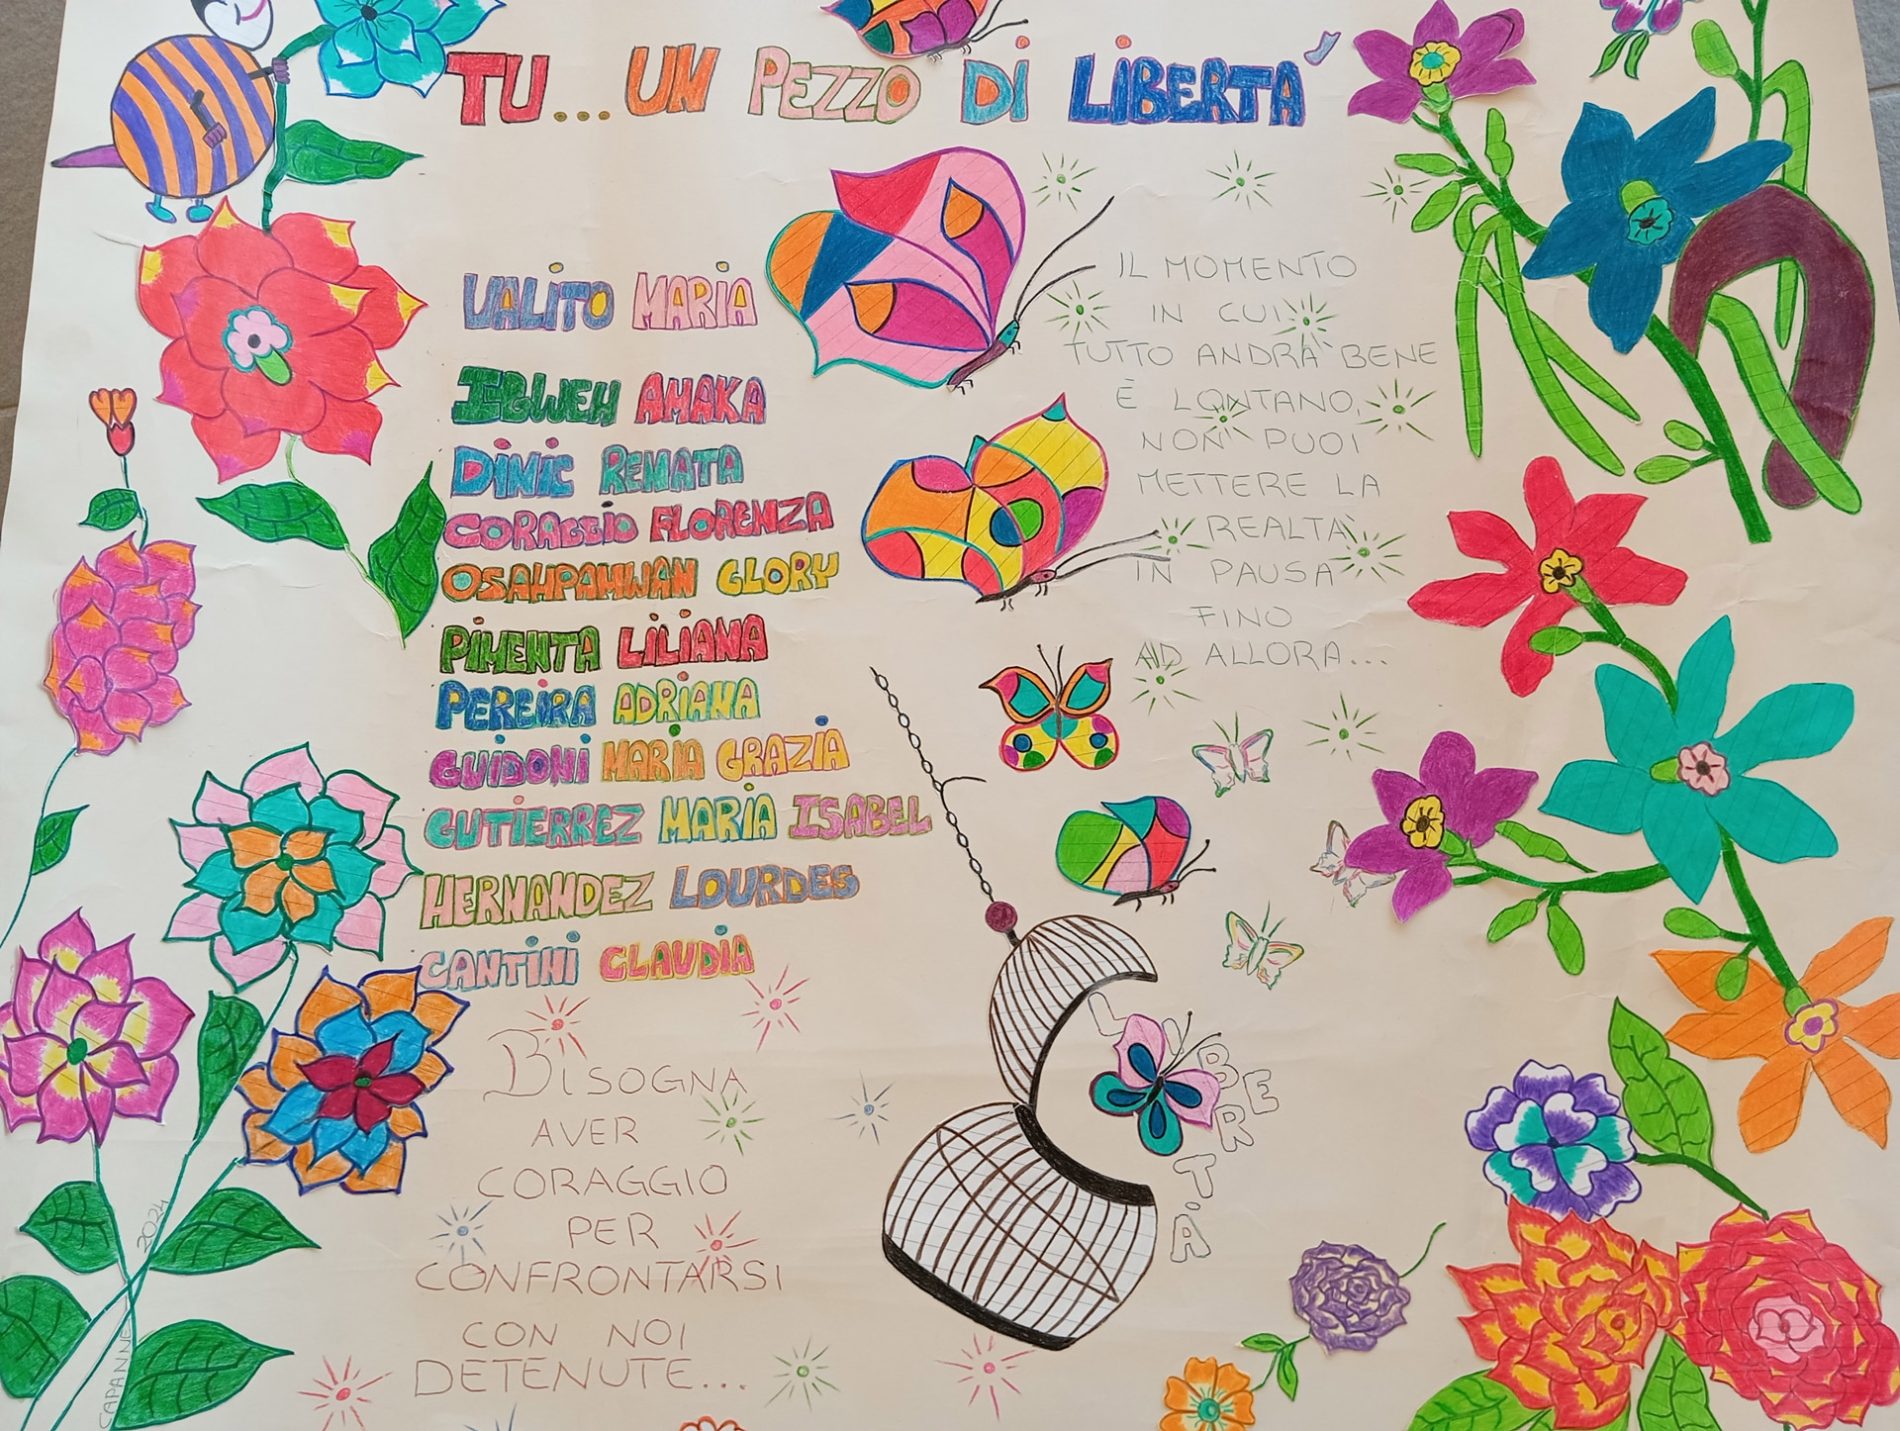 TU... UN PEZZO DI LIBERTÀ
VALITO MARIA
IGWEH AMAKA
DINIC RENATA
CORAGGIO FLORENZA
OSAHPAMWAN GLORY
PIMENTA LILIANA
PEREIRA ADRIANA
GUIDONI MARIA GRAZIA
GUTIERREZ MARIA ISABEL
HERNANDEZ LOURDES
CANTINI CLAUDIA
IL MOMENTO
IN CUI
TUTTO ANDRÀ BENE
È LONTANO,
NON PUOI
METTERE LA
REALTÀ
IN PAUSA
FINO
AD ALLORA...
LIBERTÀ
BISOGNA
AVER
CORAGGIO
PER
CONFRONTARSI
CON NOI
DETENUTE...
CAPANNE 2024